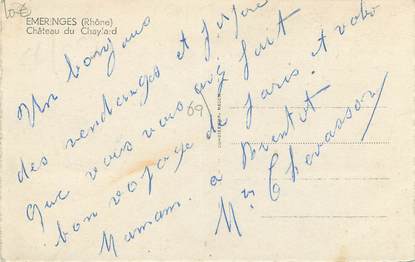 10€
EMERINGES (Rhône)
Château du Chaylard
69
Un bonjour
des vendanges et j'espère
que vous vous avez fait
bon voyage de Paris et votre
Maman. a Bientot
Mr Chevasson